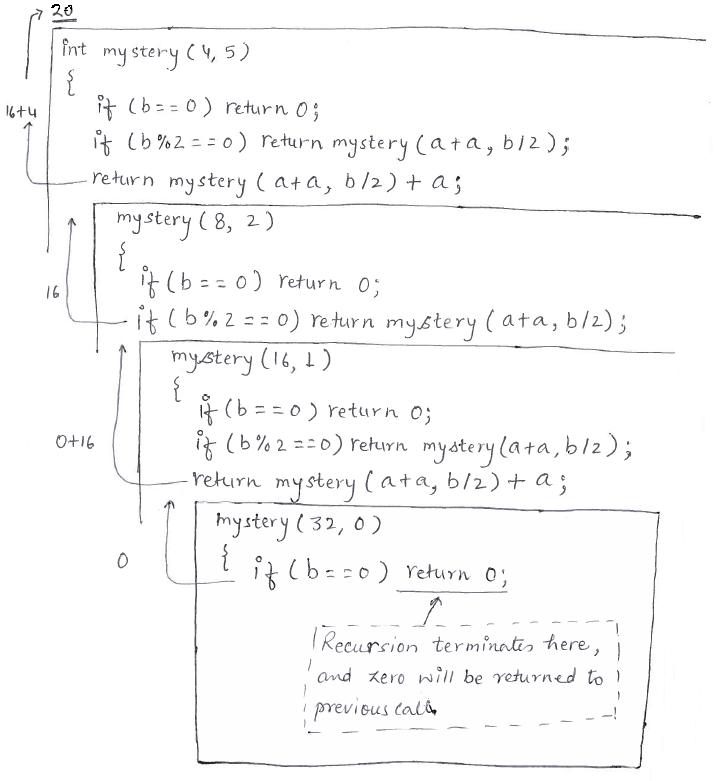 20
int mystery (4, 5)
{
16+4
if (b==0) return 0;
if (b%2==0) return mystery (a+a, b/2);
return mystery (a+a, b/2) + a;
mystery (8, 2)
{
if (b==0) return 0;
16
if (b%2==0) return mystery (a+a, b/2);
mystery (16, 1)
{
if (b==0) return 0;
0+16
if (b%2==0) return mystery (a+a, b/2);
return mystery (a+a, b/2) + a;
mystery (32, 0)
0
{ if (b==0) return 0;
Recursion terminates here,
and zero will be returned to
previous call.